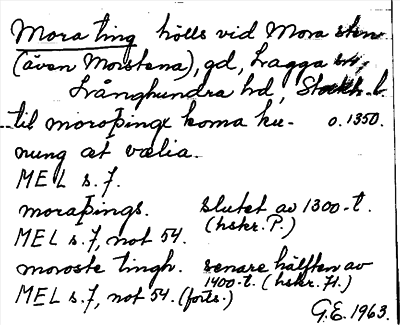 Mora ting hölls vid Mora sten
(även Morstena), gd, Lagga sn,
Långhundra hd, Stockh. l.
til moroþingx koma ku- o. 1350.
nung at vælia.
MEL s. 7.
moraþings. slutet av 1300-t.
(hskr. P.)
MEL s. 7, not 54.
moroste tingh. senare hälften av
1400-t. (hskr. H.)
MEL s. 7, not 54. (forts.)
G.E. 1963.